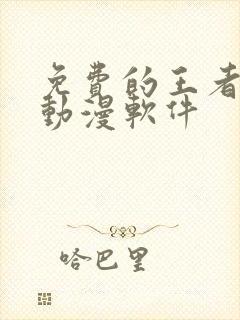 免費的王者
動漫軟件
哈巴里